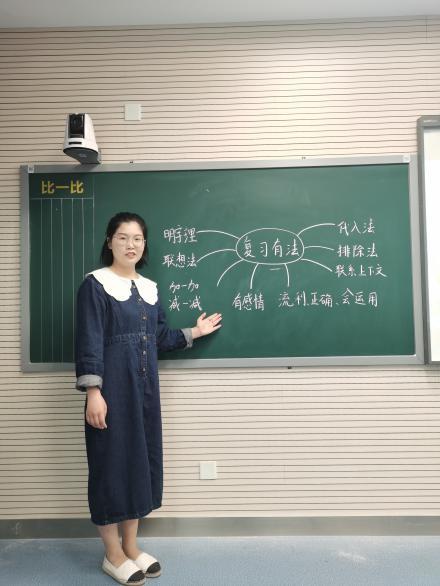 比一比
复习有法
明字理
联想法
加一加
减一减
有感情
流利、正确、会运用
代入法
排除法
联系上下文